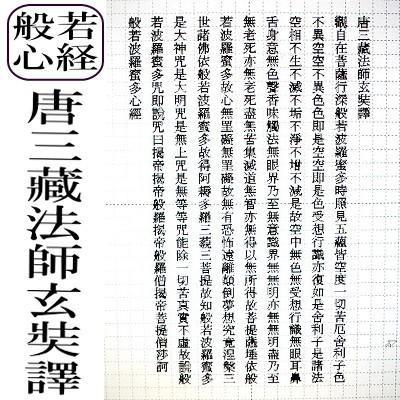 般若
心経
唐三藏法師玄奘譯
唐三藏法師玄奘譯
觀自在菩薩行深般若波羅蜜多時照見五蘊皆空度一切苦厄舍利子色
不異空空不異色色即是空空即是色受想行識亦復如是舍利子是諸法
空相不生不滅不垢不淨不增不減是故空中無色無受想行識無眼耳鼻
舌身意無色聲香味觸法無眼界乃至無意識界無無明亦無無明盡乃至
無老死亦無老死盡無苦集滅道無智亦無得以無所得故菩提薩埵依般
若波羅蜜多故心無罣礙無罣礙故無有恐怖遠離顛倒夢想究竟涅槃三
世諸佛依般若波羅蜜多故得阿耨多羅三藐三菩提故知般若波羅蜜多
是大神咒是大明咒是無上咒是無等等咒能除一切苦真實不虛故說般
若波羅蜜多咒即說咒曰揭帝揭帝般羅揭帝般羅僧揭帝菩提僧莎訶
般若波羅蜜多心經